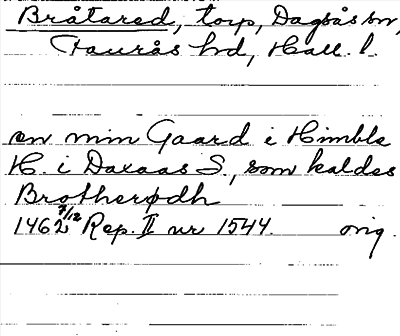 Bråtared, torp, Dagsås sn,
Faurås hd, Hall. l.
en min Gaard i Himble
H. i Daxaas S., som kaldes
Brotherødh
1462 7/12 Rep. II nr 1544. orig.